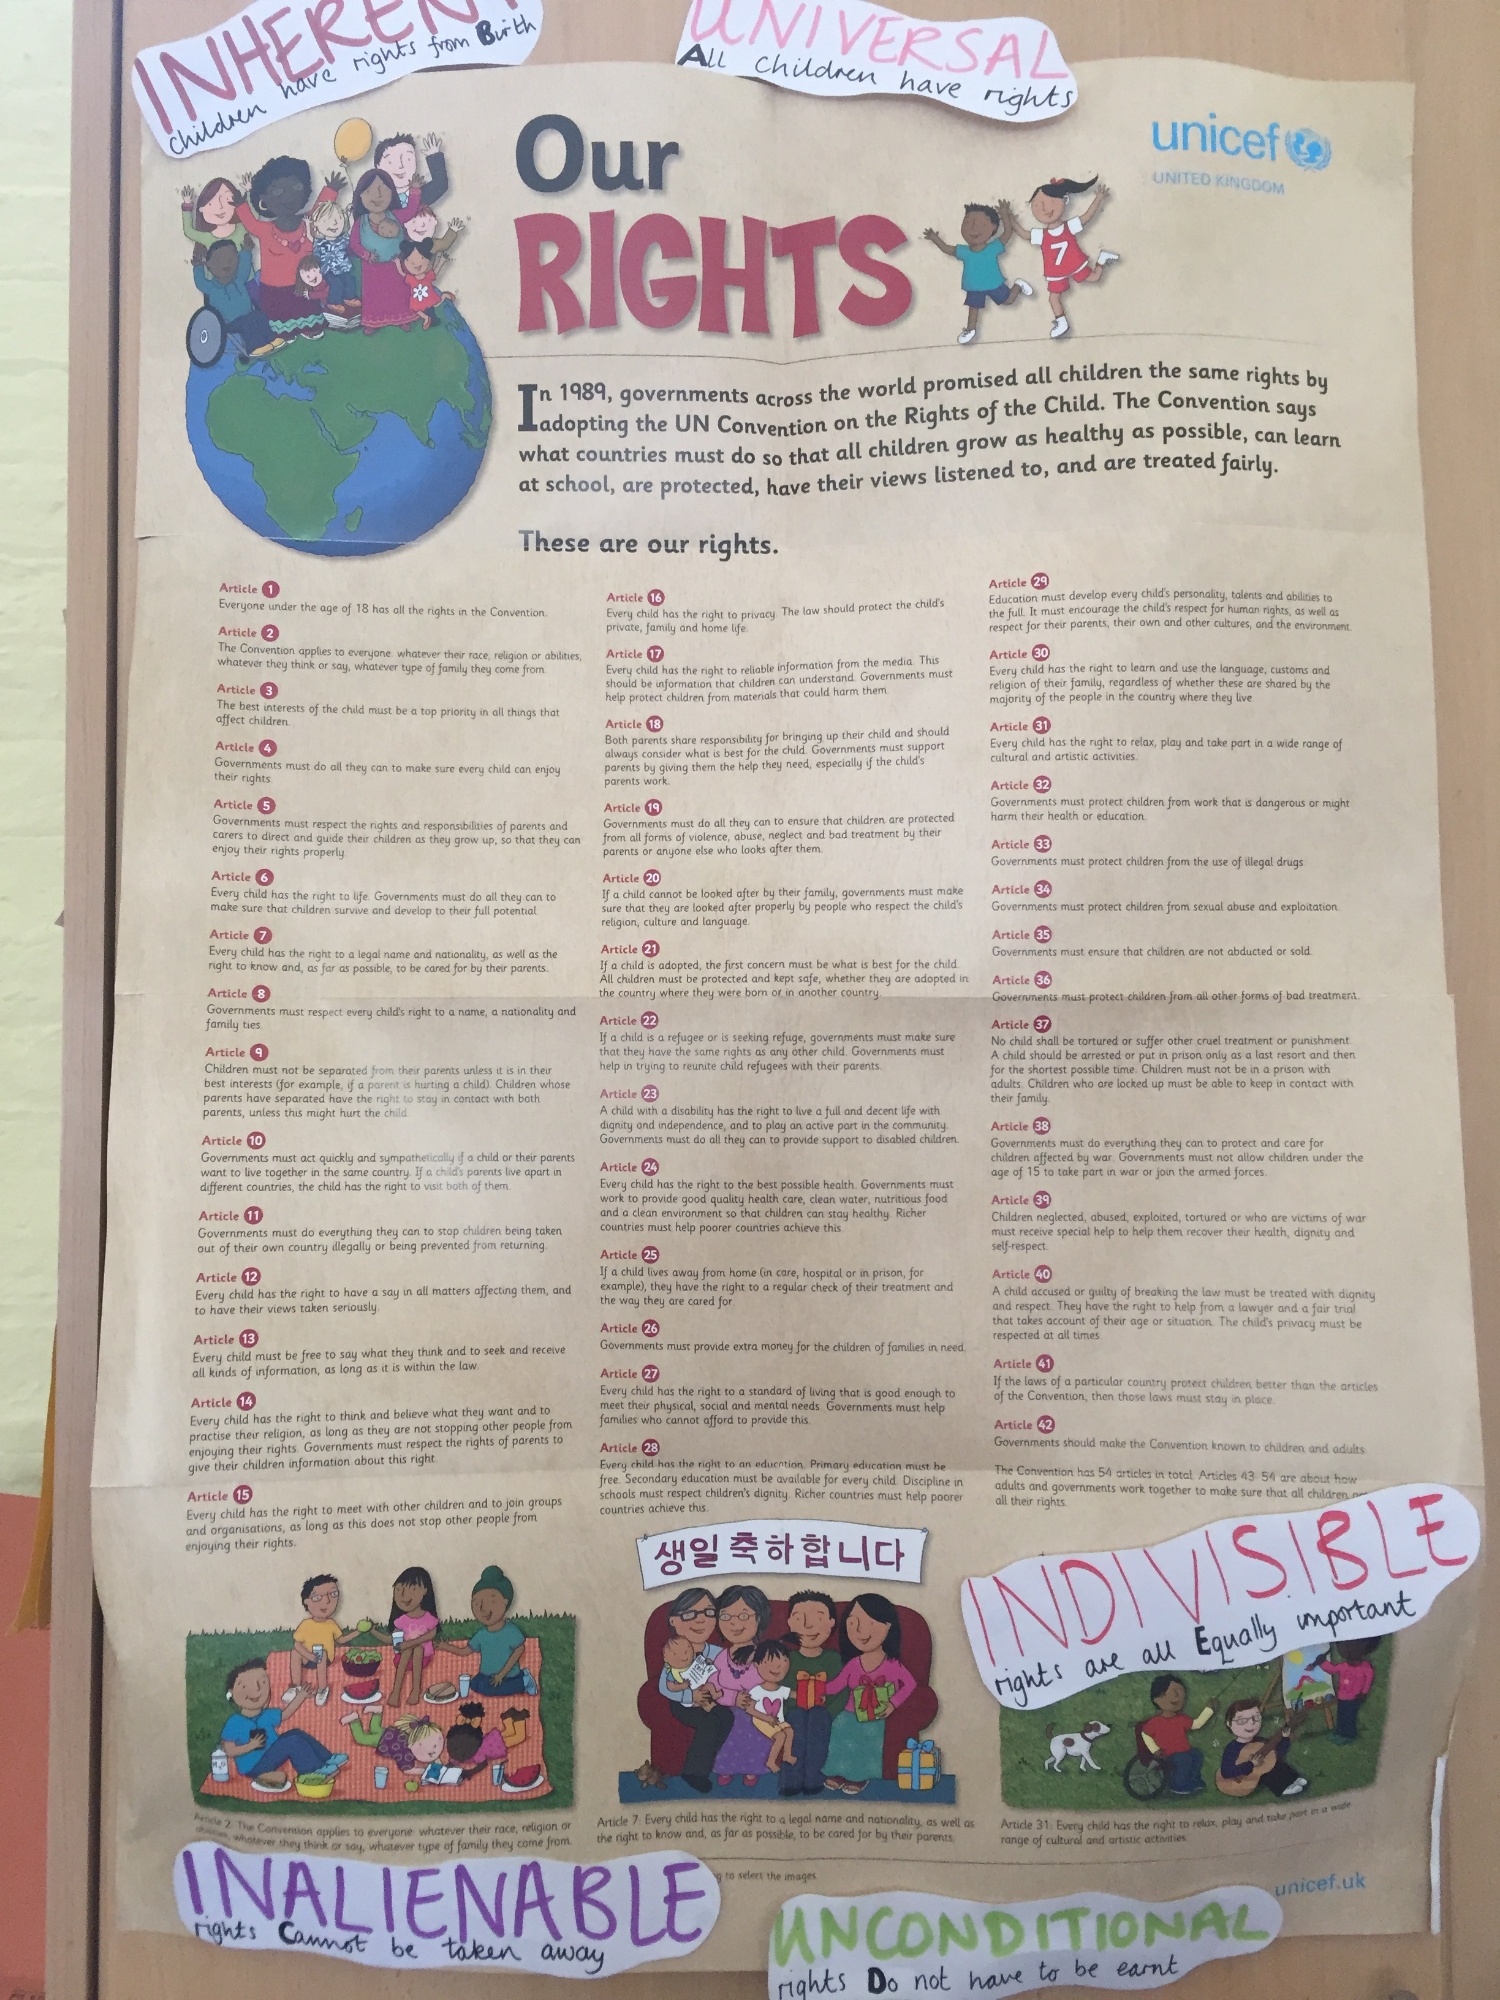 INHERENT
Children have rights from Birth
UNIVERSAL
All children have rights
Our
RIGHTS
unicef
UNITED KINGDOM
7
In 1989, governments across the world promised all children the same rights by
adopting the UN Convention on the Rights of the Child. The Convention says
what countries must do so that all children grow as healthy as possible, can learn
at school, are protected, have their views listened to, and are treated fairly.
These are our rights.
Article 1
Everyone under the age of 18 has all the rights in the Convention.
Article 2
The Convention applies to everyone: whatever their race, religion or abilities,
whatever they think or say, whatever type of family they come from.
Article 3
The best interests of the child must be a top priority in all things that
affect children.
Article 4
Governments must do all they can to make sure every child can enjoy
their rights.
Article 5
Governments must respect the rights and responsibilities of parents and
carers to direct and guide their children as they grow up, so that they can
enjoy their rights properly.
Article 6
Every child has the right to life. Governments must do all they can to
make sure that children survive and develop to their full potential.
Article 7
Every child has the right to a legal name and nationality, as well as the
right to know and, as far as possible, to be cared for by their parents.
Article 8
Governments must respect every child's right to a name, a nationality and
family ties.
Article 9
Children must not be separated from their parents unless it is in their
best interests (for example, if a parent is hurting a child). Children whose
parents have separated have the right to stay in contact with both
parents, unless this might hurt the child.
Article 10
Governments must act quickly and sympathetically if a child or their parents
want to live together in the same country. If a child's parents live apart in
different countries, the child has the right to visit both of them.
Article 11
Governments must do everything they can to stop children being taken
out of their own country illegally or being prevented from returning.
Article 12
Every child has the right to have a say in all matters affecting them, and
to have their views taken seriously.
Article 13
Every child must be free to say what they think and to seek and receive
all kinds of information, as long as it is within the law.
Article 14
Every child has the right to think and believe what they want and to
practise their religion, as long as they are not stopping other people from
enjoying their rights. Governments must respect the rights of parents to
give their children information about this right.
Article 15
Every child has the right to meet with other children and to join groups
and organisations, as long as this does not stop other people from
enjoying their rights.
Article 16
Every child has the right to privacy. The law should protect the child's
private, family and home life.
Article 17
Every child has the right to reliable information from the media. This
should be information that children can understand. Governments must
help protect children from materials that could harm them.
Article 18
Both parents share responsibility for bringing up their child and should
always consider what is best for the child. Governments must support
parents by giving them the help they need, especially if the child's
parents work.
Article 19
Governments must do all they can to ensure that children are protected
from all forms of violence, abuse, neglect and bad treatment by their
parents or anyone else who looks after them.
Article 20
If a child cannot be looked after by their family, governments must make
sure that they are looked after properly by people who respect the child's
religion, culture and language.
Article 21
If a child is adopted, the first concern must be what is best for the child.
All children must be protected and kept safe, whether they are adopted in
the country where they were born or in another country.
Article 22
If a child is a refugee or is seeking refuge, governments must make sure
that they have the same rights as any other child. Governments must
help in trying to reunite child refugees with their parents.
Article 23
A child with a disability has the right to live a full and decent life with
dignity and independence, and to play an active part in the community.
Governments must do all they can to provide support to disabled children.
Article 24
Every child has the right to the best possible health. Governments must
work to provide good quality health care, clean water, nutritious food
and a clean environment so that children can stay healthy. Richer
countries must help poorer countries achieve this.
Article 25
If a child lives away from home (in care, hospital or in prison, for
example), they have the right to a regular check of their treatment and
the way they are cared for.
Article 26
Governments must provide extra money for the children of families in need.
Article 27
Every child has the right to a standard of living that is good enough to
meet their physical, social and mental needs. Governments must help
families who cannot afford to provide this.
Article 28
Every child has the right to an education. Primary education must be
free. Secondary education must be available for every child. Discipline in
schools must respect children's dignity. Richer countries must help poorer
countries achieve this.
Article 29
Education must develop every child's personality, talents and abilities to
the full. It must encourage the child's respect for human rights, as well as
respect for their parents, their own and other cultures, and the environment.
Article 30
Every child has the right to learn and use the language, customs and
religion of their family, regardless of whether these are shared by the
majority of the people in the country where they live.
Article 31
Every child has the right to relax, play and take part in a wide range of
cultural and artistic activities.
Article 32
Governments must protect children from work that is dangerous or might
harm their health or education.
Article 33
Governments must protect children from the use of illegal drugs.
Article 34
Governments must protect children from sexual abuse and exploitation.
Article 35
Governments must ensure that children are not abducted or sold.
Article 36
Governments must protect children from all other forms of bad treatment.
Article 37
No child shall be tortured or suffer other cruel treatment or punishment.
A child should be arrested or put in prison only as a last resort and then
for the shortest possible time. Children must not be in a prison with
adults. Children who are locked up must be able to keep in contact with
their family.
Article 38
Governments must do everything they can to protect and care for
children affected by war. Governments must not allow children under the
age of 15 to take part in war or join the armed forces.
Article 39
Children neglected, abused, exploited, tortured or who are victims of war
must receive special help to help them recover their health, dignity and
self-respect.
Article 40
A child accused or guilty of breaking the law must be treated with dignity
and respect. They have the right to help from a lawyer and a fair trial
that takes account of their age or situation. The child's privacy must be
respected at all times.
Article 41
If the laws of a particular country protect children better than the articles
of the Convention, then those laws must stay in place.
Article 42
Governments should make the Convention known to children and adults.
The Convention has 54 articles in total. Articles 43-54 are about how
adults and governments work together to make sure that all children
all their rights.
INDIVISIBLE
rights are all Equally important
생일 축하합니다
Article 2: The Convention applies to everyone: whatever their race, religion or
whatever they think or say, whatever type of family they come from.
Article 7: Every child has the right to a legal name and nationality, as well as
the right to know and, as far as possible, to be cared for by their parents.
Article 31: Every child has the right to relax, play and take part in a wide
range of cultural and artistic activities.
to select the images.
unicef.uk
INALIENABLE
rights Cannot be taken away
UNCONDITIONAL
rights Do not have to be earnt